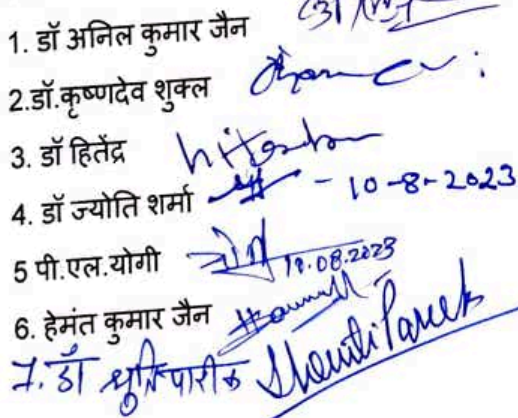 1. डॉ अनिल कुमार जैन
2.डॉ.कृष्णदेव शुक्ल
3. डॉ हितेंद्र hitendra
4. डॉ ज्योति शर्मा - 10-8-2023
5 पी.एल.योगी
6. हेमंत कुमार जैन
7. डॉ श्रुति पारीक Shruti Pareek